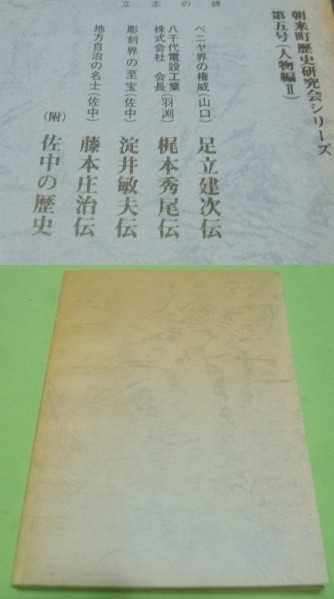 碑の志立
朝来町歴史研究会シリーズ
第五号(人物編Ⅱ)
ベニヤ界の権威(山口) 足立建次伝
八千代電設工業株式会社 会長(羽渕) 梶本秀尾伝
彫刻界の至宝(佐中) 淀井敏夫伝
地方自治の名士(佐中) 藤本庄治伝
(附) 佐中の歴史